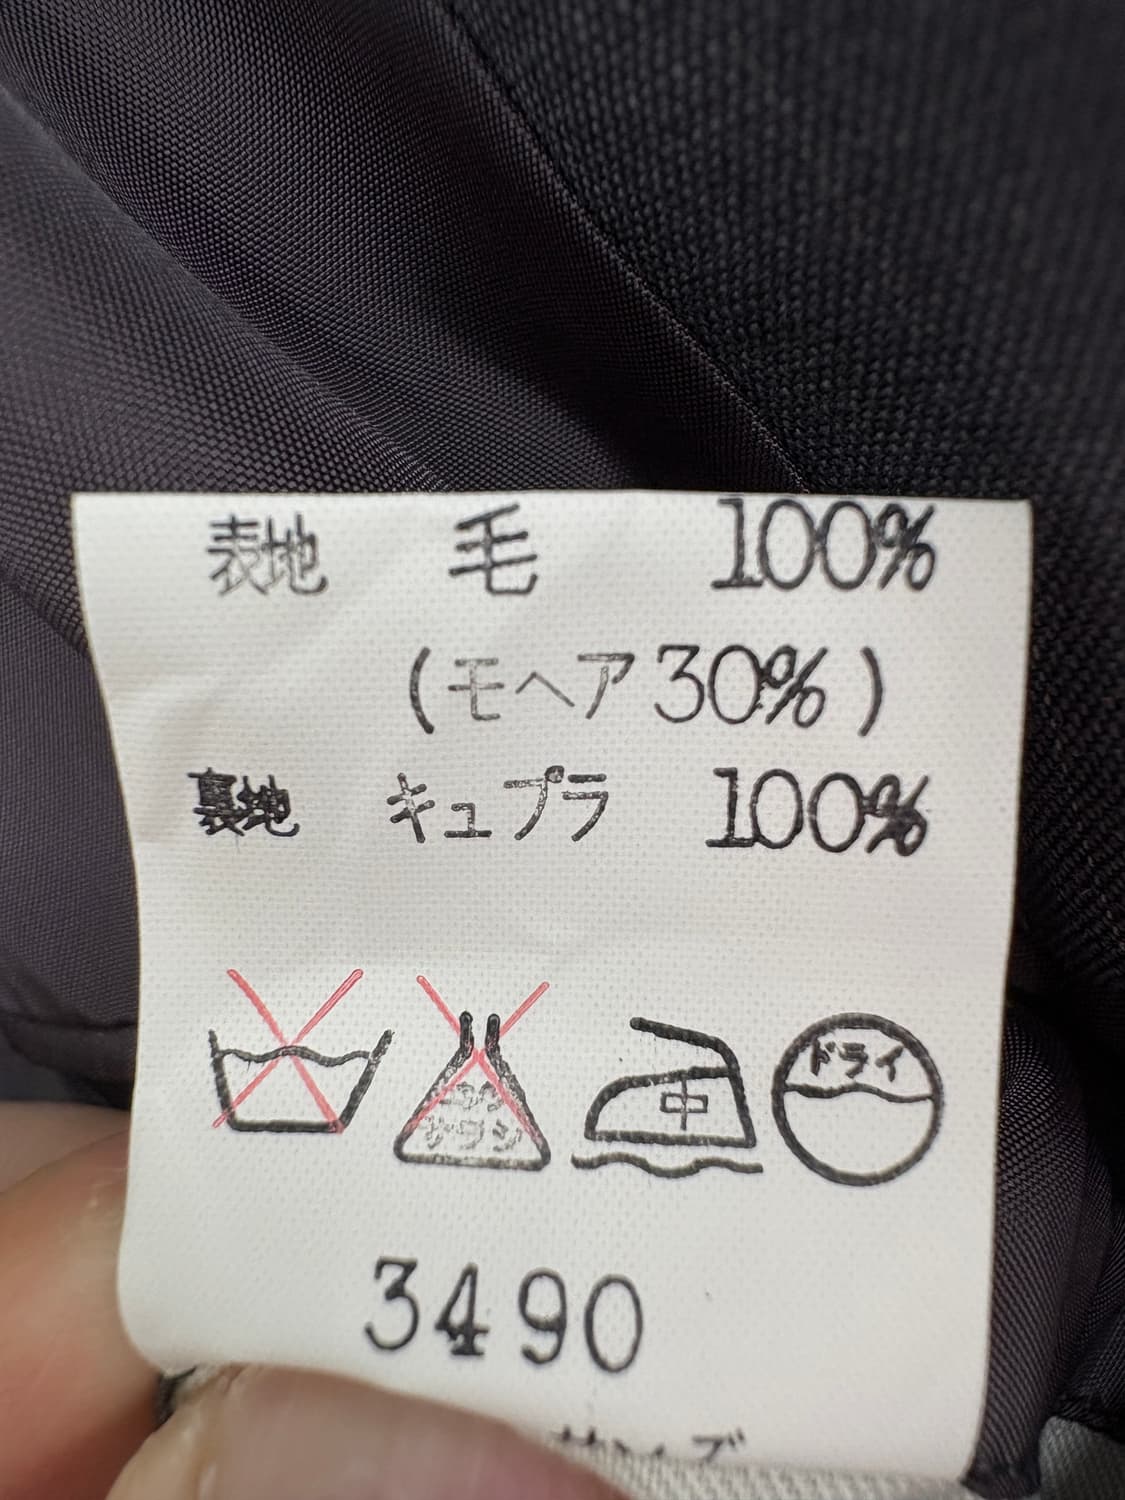 表地 毛 100%
(モヘア30%)
裏地 キュプラ 100%
エンソ
サラシ
中
ドライ
3490
サイズ